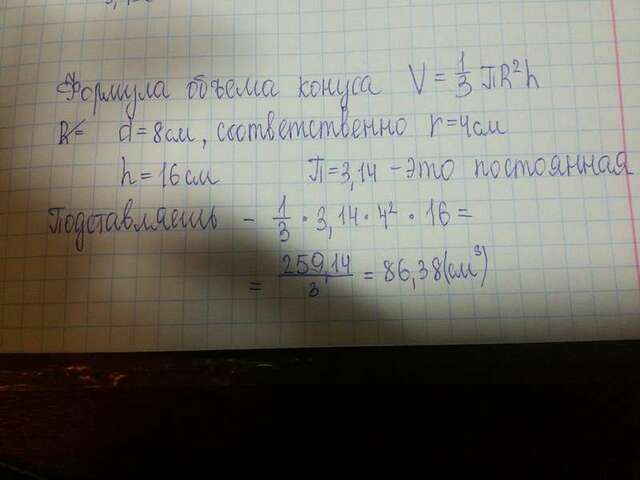 Формула объема конуса V = 1/3 ПR²h
R= d=8см, соответственно r=4см
h=16см П=3,14 - это постоянная
Подставляешь - 1/3 · 3,14 · 4² · 16 =
= 259,14/3 = 86,38(см³)